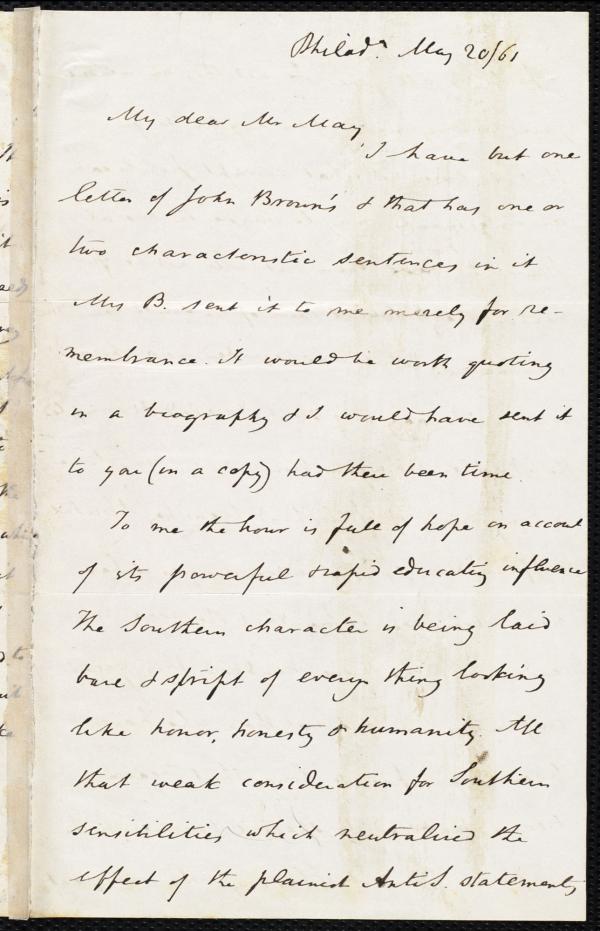 Philada. May 20/61
My dear Mr May,
I have but one
letter of John Brown's & that has one or
two characteristic sentences in it
Mrs B. sent it to me merely for re-
membrance. It would be worth quoting
in a biography & I would have sent it
to you (in a copy) had there been time.
To me the hour is full of hope on account
of its powerful & rapid educating influence
The Southern character is being laid
bare & stript of every thing looking
like honor, honesty & humanity. All
that weak consideration for Southern
sensibilities which neutralized the
effect of the plainest Anti S. statements,